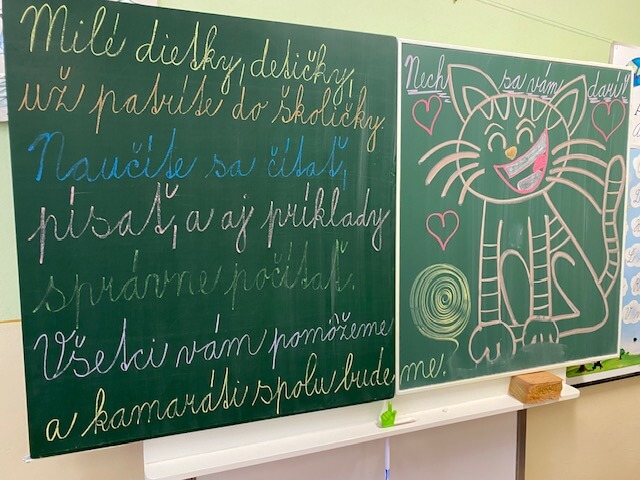 Milé dietky, detičky,
už patríte do školičky.
Naučíte sa čítať,
písať, a aj príklady
správne počítať.
Všetci vám pomôžeme
a kamaráti spolu budeme.
Nech sa vám darí!